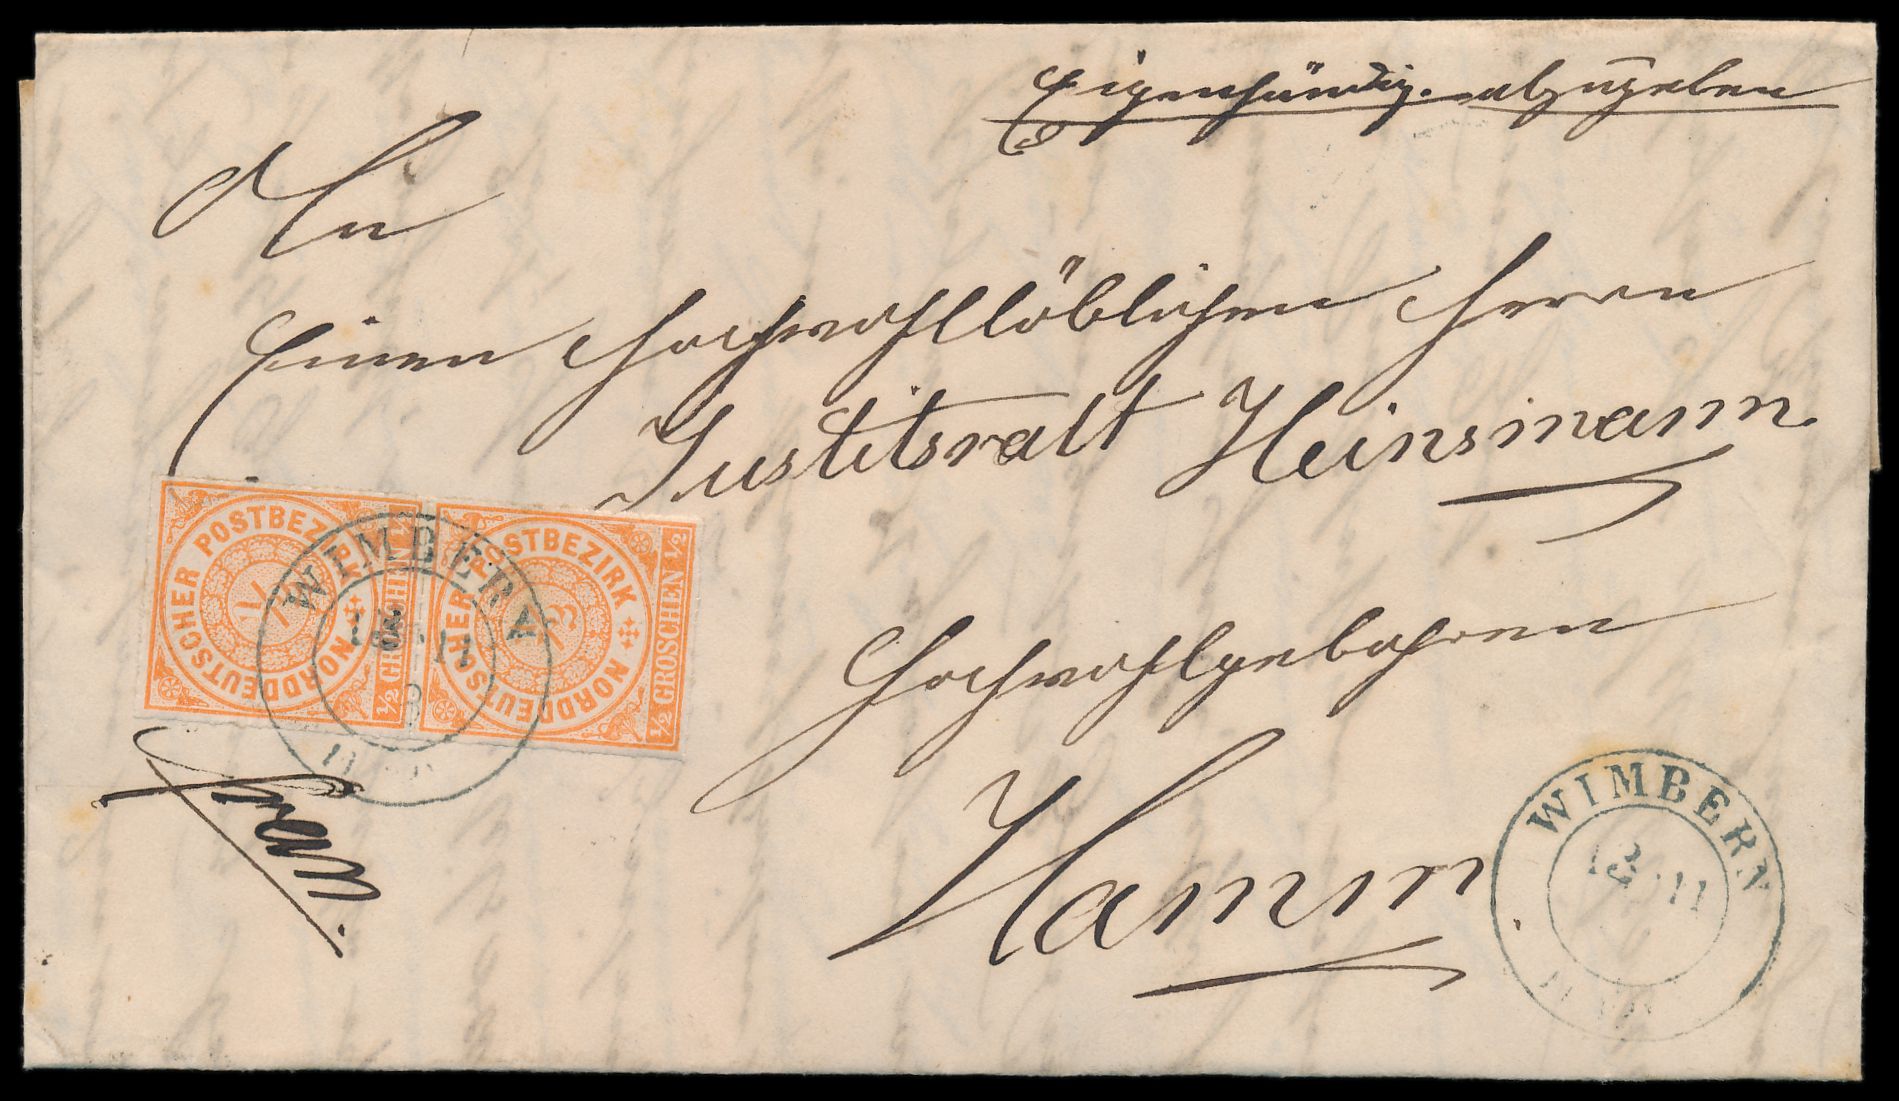 Eigenhändig abzugeben
An
Einen Hochwohllöblichen Herrn
Justitsratt Heinsmann.
Hochwohlgebohren
Hamm
NORDDEUTSCHER POSTBEZIRK
1/2 GROSCHEN 1/2
NORDDEUTSCHER POSTBEZIRK
1/2 GROSCHEN 1/2
WIMBERN
franco.
WIMBERN